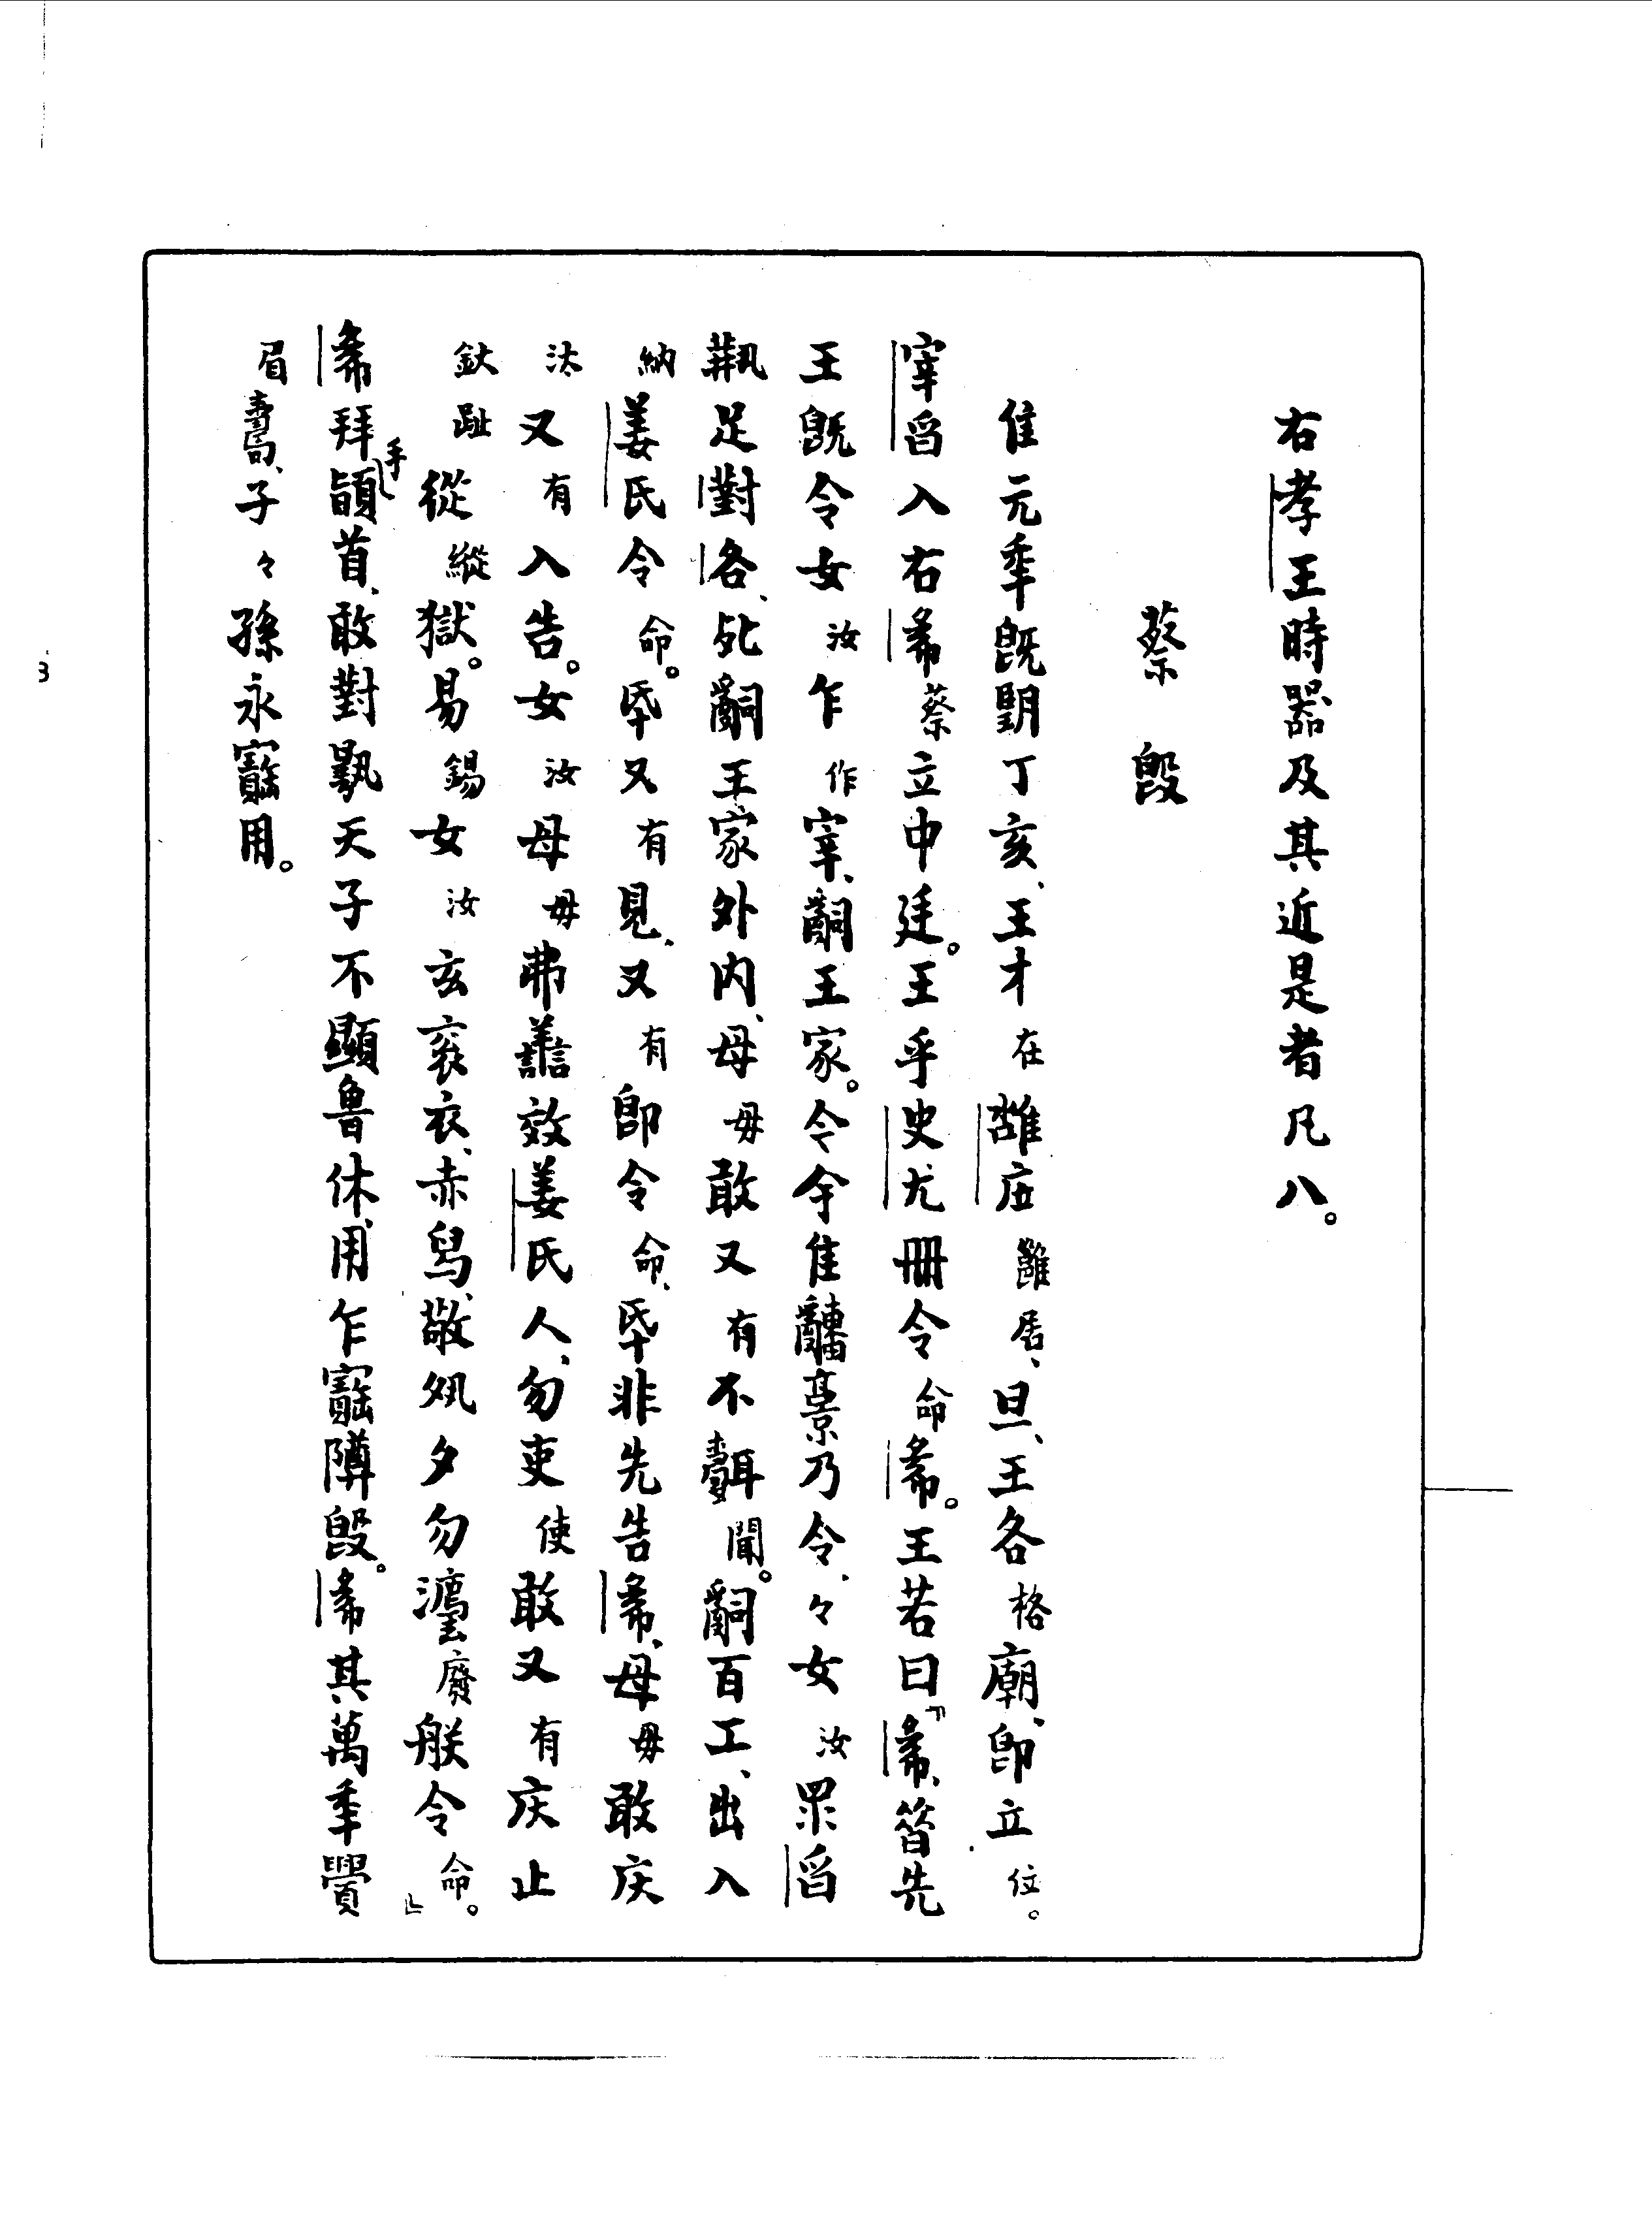 右孝王時器及其近是者凡八。
蔡𣪘
隹元年既朢丁亥、王才在雝应雝居、旦、王各格廟、即立位。
宰曶入右𣄴蔡立中廷。王乎史尤冊令命𣄴。王若曰『𣄴、昔先
王既令女汝乍作宰、𤔲王家。今余隹䌛𩫨乃令、令々女汝眔曶
𩰬足對各、死𤔲王家外內、母毋敢又有不𦖞聞。𤔲百工、出入
納姜氏令命。氒又有見、又有即令命、氒非先告𣄴、母毋敢𥎦
汰又有入告。女汝母毋弗譱效姜氏人、勿吏使敢又有𥎦止
釱趾從縱獄。易錫女汝玄袞衣、赤舄、敬夙夕勿灋廢朕令命。』
𣄴拜手䭫首、敢對𩁹天子不顯魯休、用乍寶𨻰𣪘。𣄴其萬年𧶠
眉壽、子々孫永寶用。